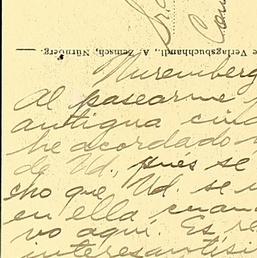 Sra
Can
e Verlagsbuchhandl., A. Zensch, Nürnberg.
Nuremberg
Al pasearme
antigua ciud
he acordado
de Ud, pues se
cho que Ud. se
en ella, cuan
vo aquí. Es re
interesantísi